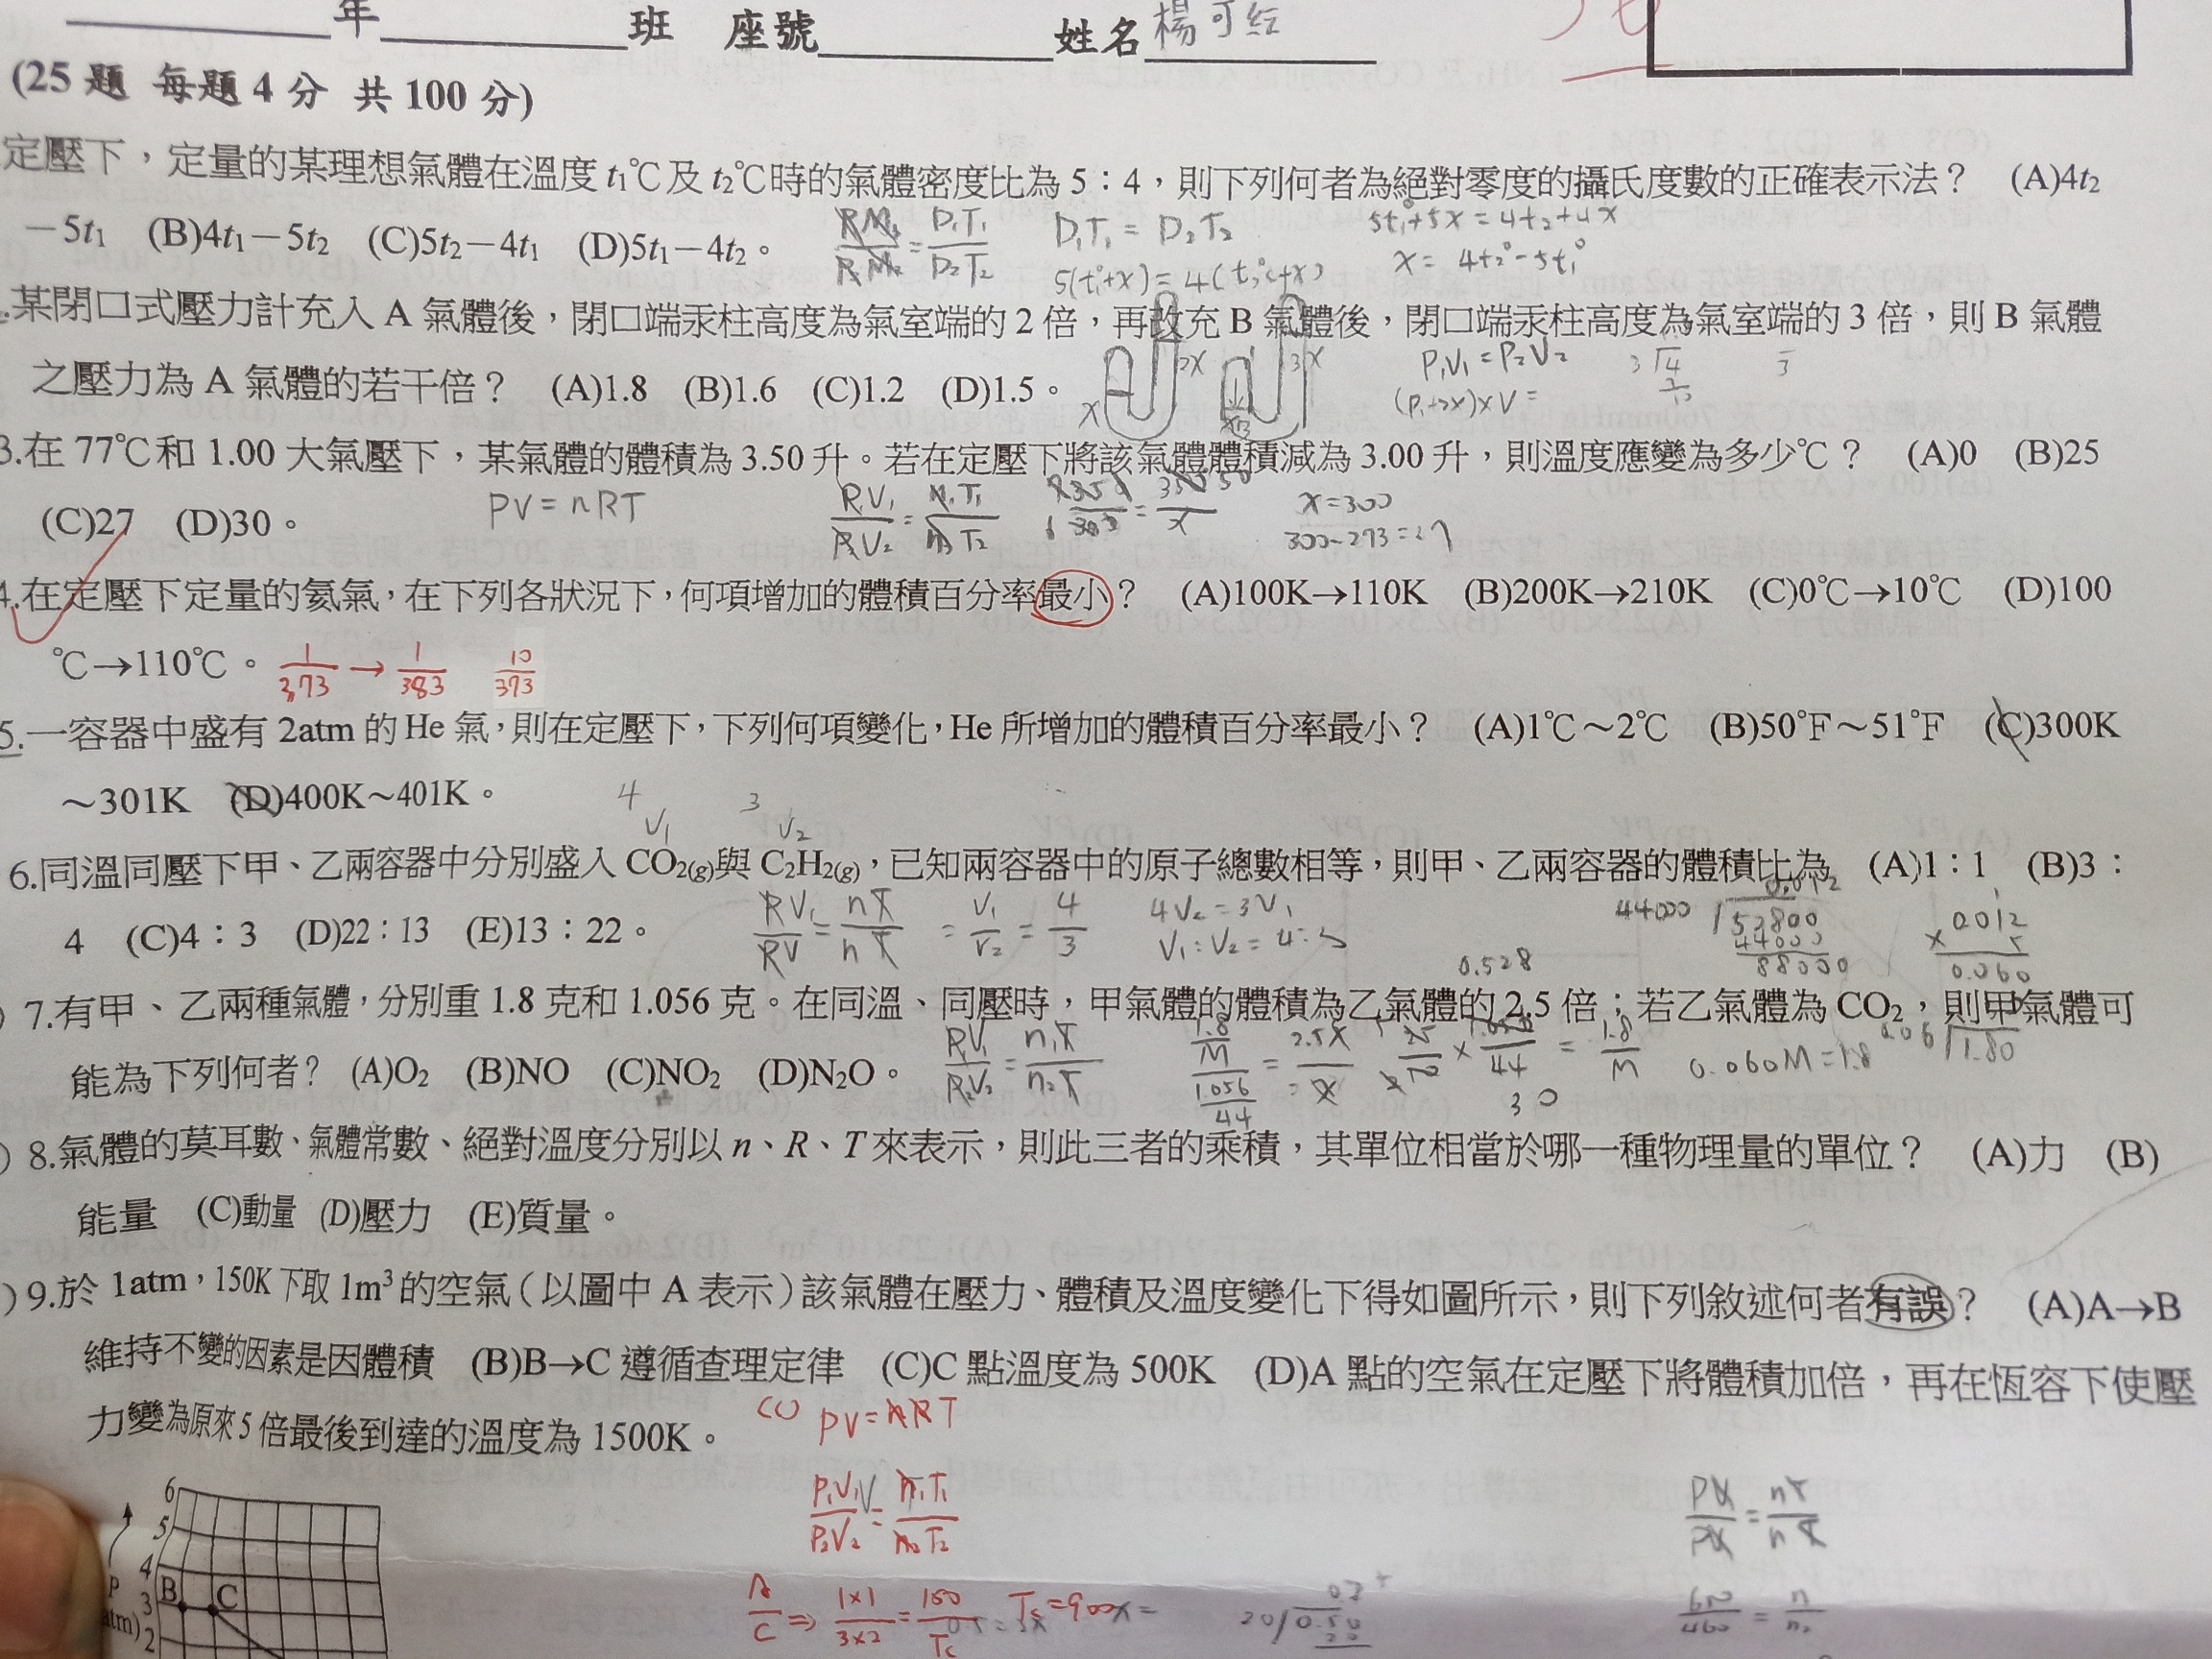 年 班 座號 姓名 楊可
(25 題 每題 4 分 共 100 分)
定壓下,定量的某理想氣體在溫度 t₁℃及 t₂℃時的氣體密度比為 5:4,則下列何者為絕對零度的攝氏度數的正確表示法? (A)4t₂
-5t₁ (B)4t₁-5t₂ (C)5t₂-4t₁ (D)5t₁-4t₂。
D₁T₁ = D₂T₂
5t₁°+5x = 4t₂+4x
x = 4t₂°-5t₁°
某閉口式壓力計充入 A 氣體後,閉口端汞柱高度為氣室端的 2 倍,再改充 B 氣體後,閉口端汞柱高度為氣室端的 3 倍,則 B 氣體
之壓力為 A 氣體的若干倍? (A)1.8 (B)1.6 (C)1.2 (D)1.5。
2X 3X X
P₁V₁=P₂V₂
3.在 77℃和 1.00 大氣壓下,某氣體的體積為 3.50 升。若在定壓下將該氣體體積減為 3.00 升,則溫度應變為多少℃? (A)0 (B)25
(C)27 (D)30。
PV = nRT
x=300
300-273=27
4.在定壓下定量的氦氣,在下列各狀況下,何項增加的體積百分率最小? (A)100K→110K (B)200K→210K (C)0℃→10℃ (D)100
℃→110℃。 1/373 → 1/383 10/373
5.一容器中盛有 2atm 的 He 氣,則在定壓下,下列何項變化,He 所增加的體積百分率最小? (A)1℃~2℃ (B)50°F~51°F (C)300K
~301K (D)400K~401K。
4 3
V₁ V₂
6.同溫同壓下甲、乙兩容器中分別盛入 CO₂(g)與 C₂H₂(g),已知兩容器中的原子總數相等,則甲、乙兩容器的體積比為 (A)1:1 (B)3:
4 (C)4:3 (D)22:13 (E)13:22。
= V₁/V₂ = 4/3
4V₂=3V₁
0.528
7.有甲、乙兩種氣體,分別重 1.8 克和 1.056 克。在同溫、同壓時,甲氣體的體積為乙氣體的 2.5 倍;若乙氣體為 CO₂,則甲氣體可
能為下列何者? (A)O₂ (B)NO (C)NO₂ (D)N₂O。
0.060M=1.8
30
8.氣體的莫耳數、氣體常數、絕對溫度分別以 n、R、T 來表示,則此三者的乘積,其單位相當於哪一種物理量的單位? (A)力 (B)
能量 (C)動量 (D)壓力 (E)質量。
9.於 1atm,150K 下取 1m³ 的空氣(以圖中 A 表示)該氣體在壓力、體積及溫度變化下得如圖所示,則下列敘述何者有誤? (A)A→B
維持不變的因素是因體積 (B)B→C 遵循查理定律 (C)C 點溫度為 500K (D)A 點的空氣在定壓下將體積加倍,再在恆容下使壓
力變為原來 5 倍最後到達的溫度為 1500K。
PV=nRT
P₁V₁/P₂V₂ = n₁T₁/n₂T₂
A/C ⇒ 1×1/3×2 = 150/Tc Tc=900
6
5
4
P 3 B C
atm) 2